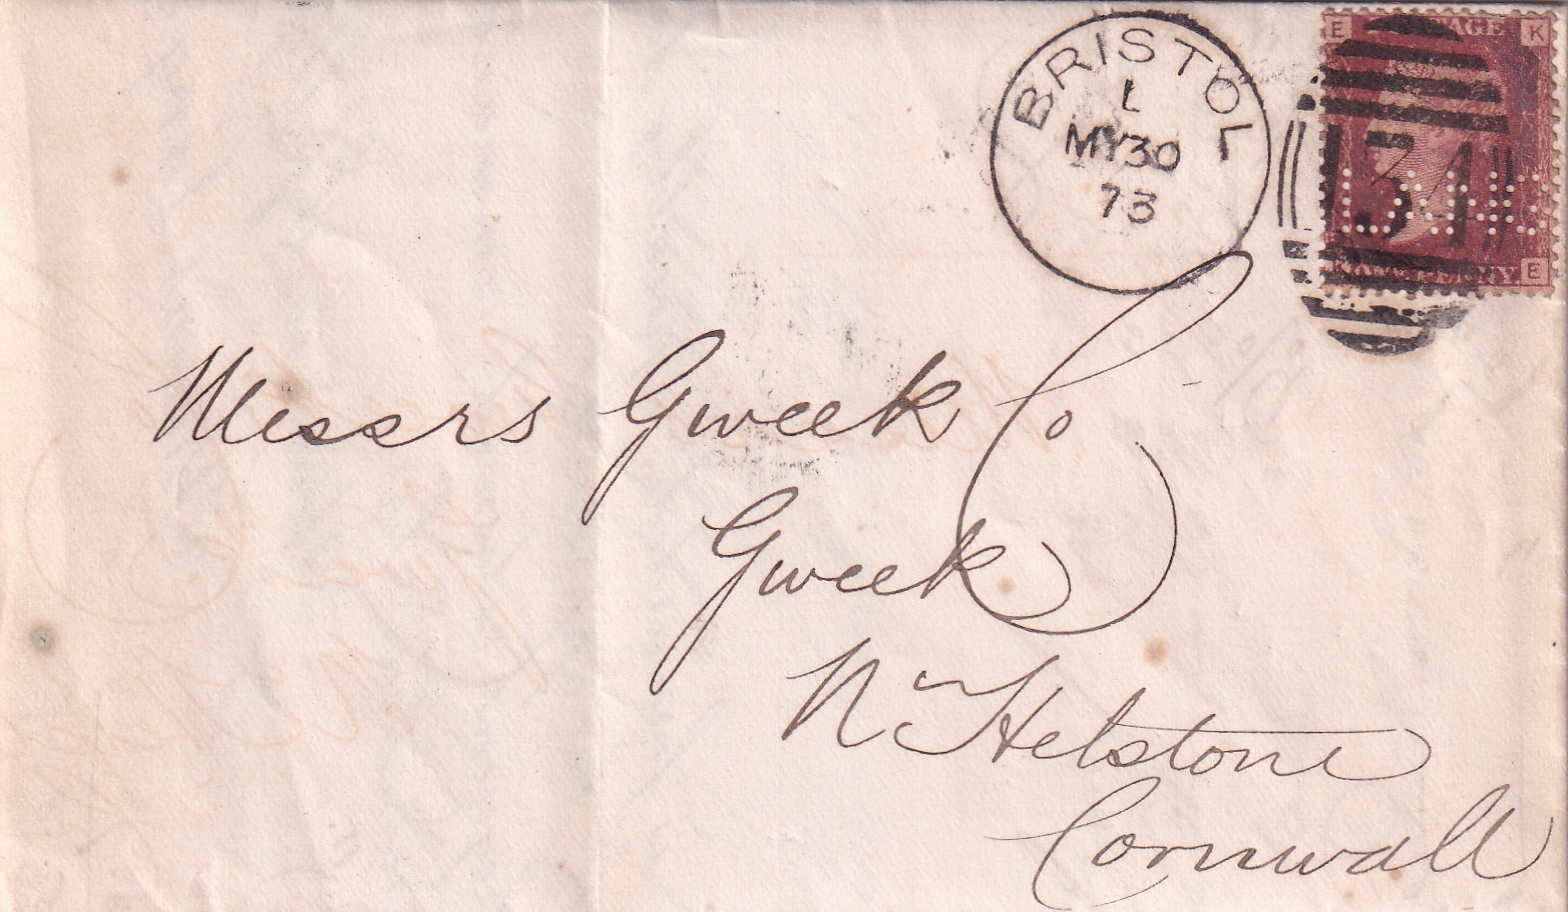 BRISTOL
L
MY 30
73
E K
134
K E
ONE PENNY
Messrs Gweek Co
Gweek
Nr Helstone
Cornwall